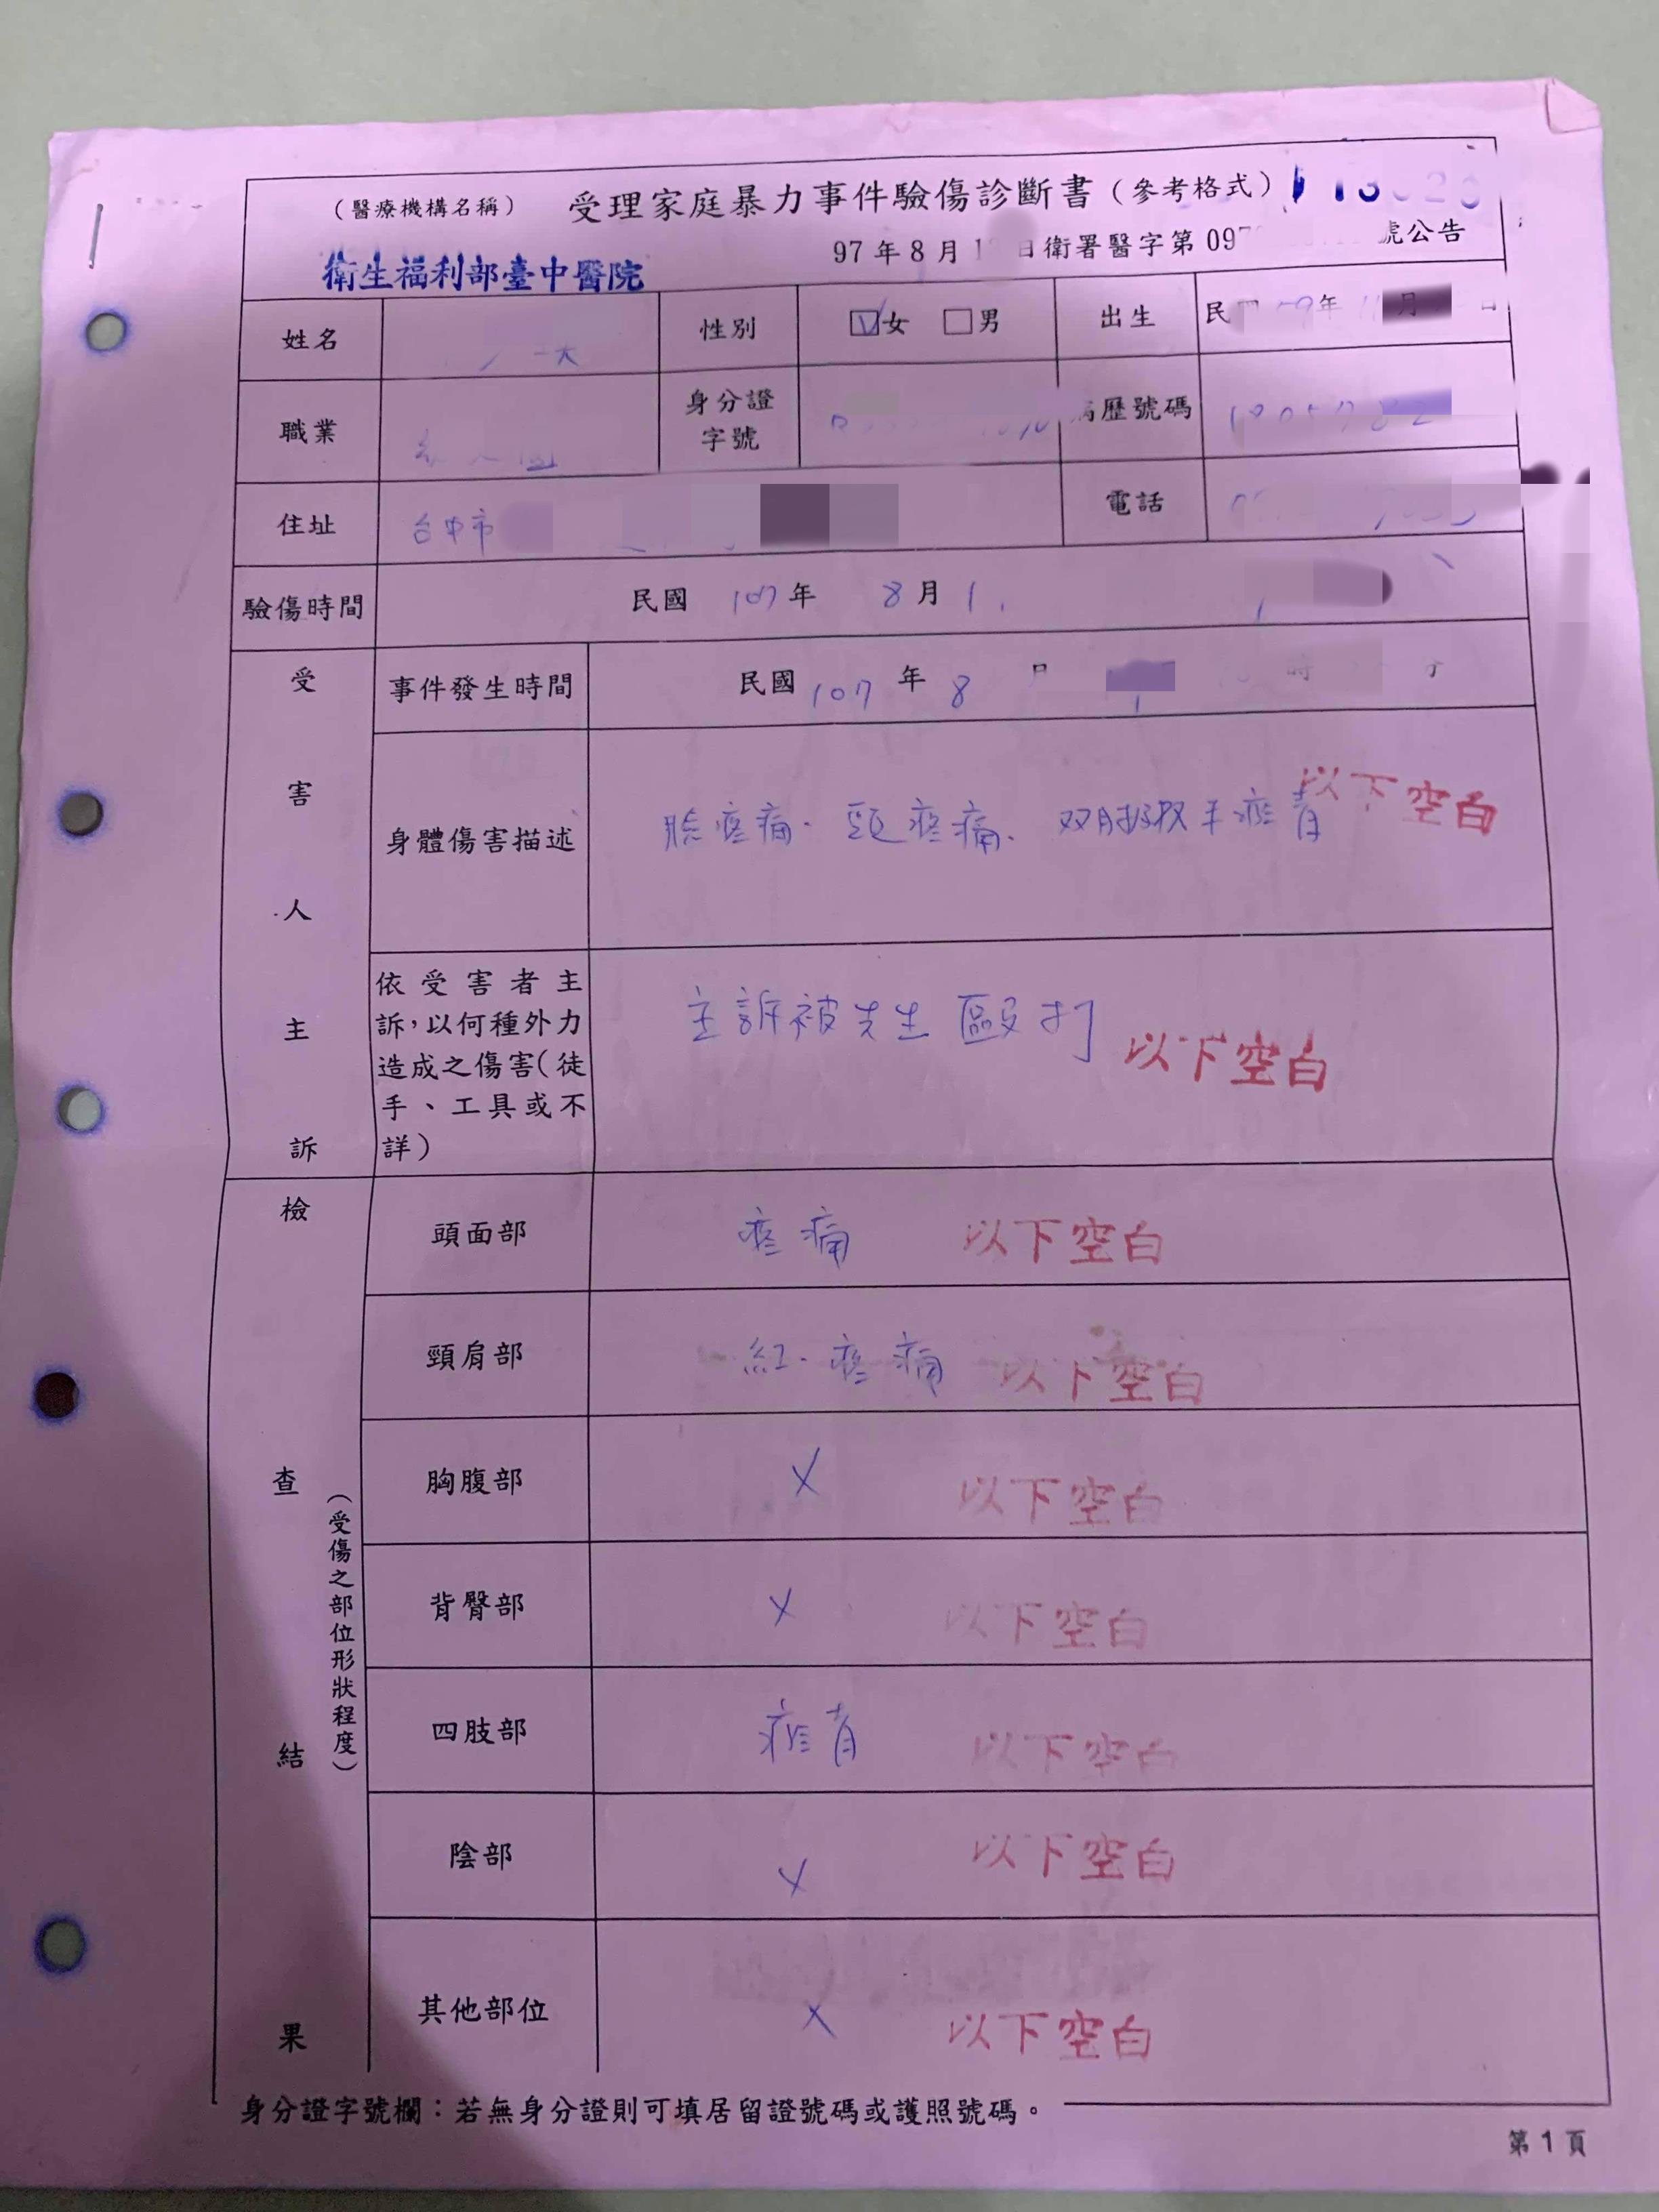 (醫療機構名稱) 受理家庭暴力事件驗傷診斷書(參考格式)
97年8月 日衛署醫字第097 號公告
衛生福利部臺中醫院
姓名 性別 ☑女 □男 出生 民 年 月 日
職業 身分證字號 歷號碼
住址 台中市 電話
驗傷時間 民國 107年 8月
受害人主訴
事件發生時間 民國 107 年 8 時
身體傷害描述 臉疼痛、頸疼痛、双 手瘀青 以下空白
依受害者主
訴,以何種外力
造成之傷害(徒
手、工具或不
詳)
主訴被先生毆打 以下空白
檢查結果
(受傷之部位形狀程度)
頭面部 疼痛 以下空白
頸肩部 紅、疼痛 以下空白
胸腹部 X 以下空白
背臀部 X 以下空白
四肢部 瘀青 以下空白
陰部 X 以下空白
其他部位 X 以下空白
身分證字號欄:若無身分證則可填居留證號碼或護照號碼。
第1頁